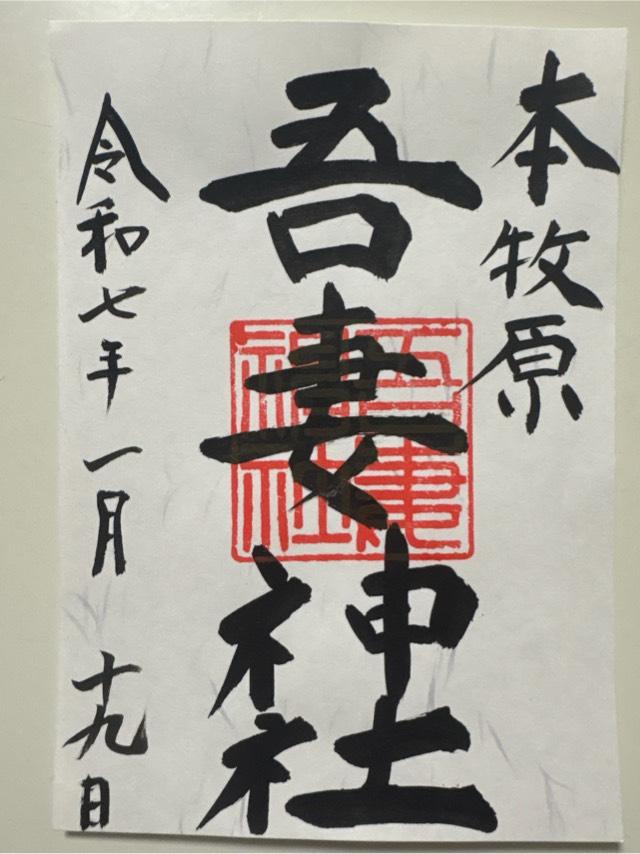 本牧原
吾妻神社
令和七年一月十九日